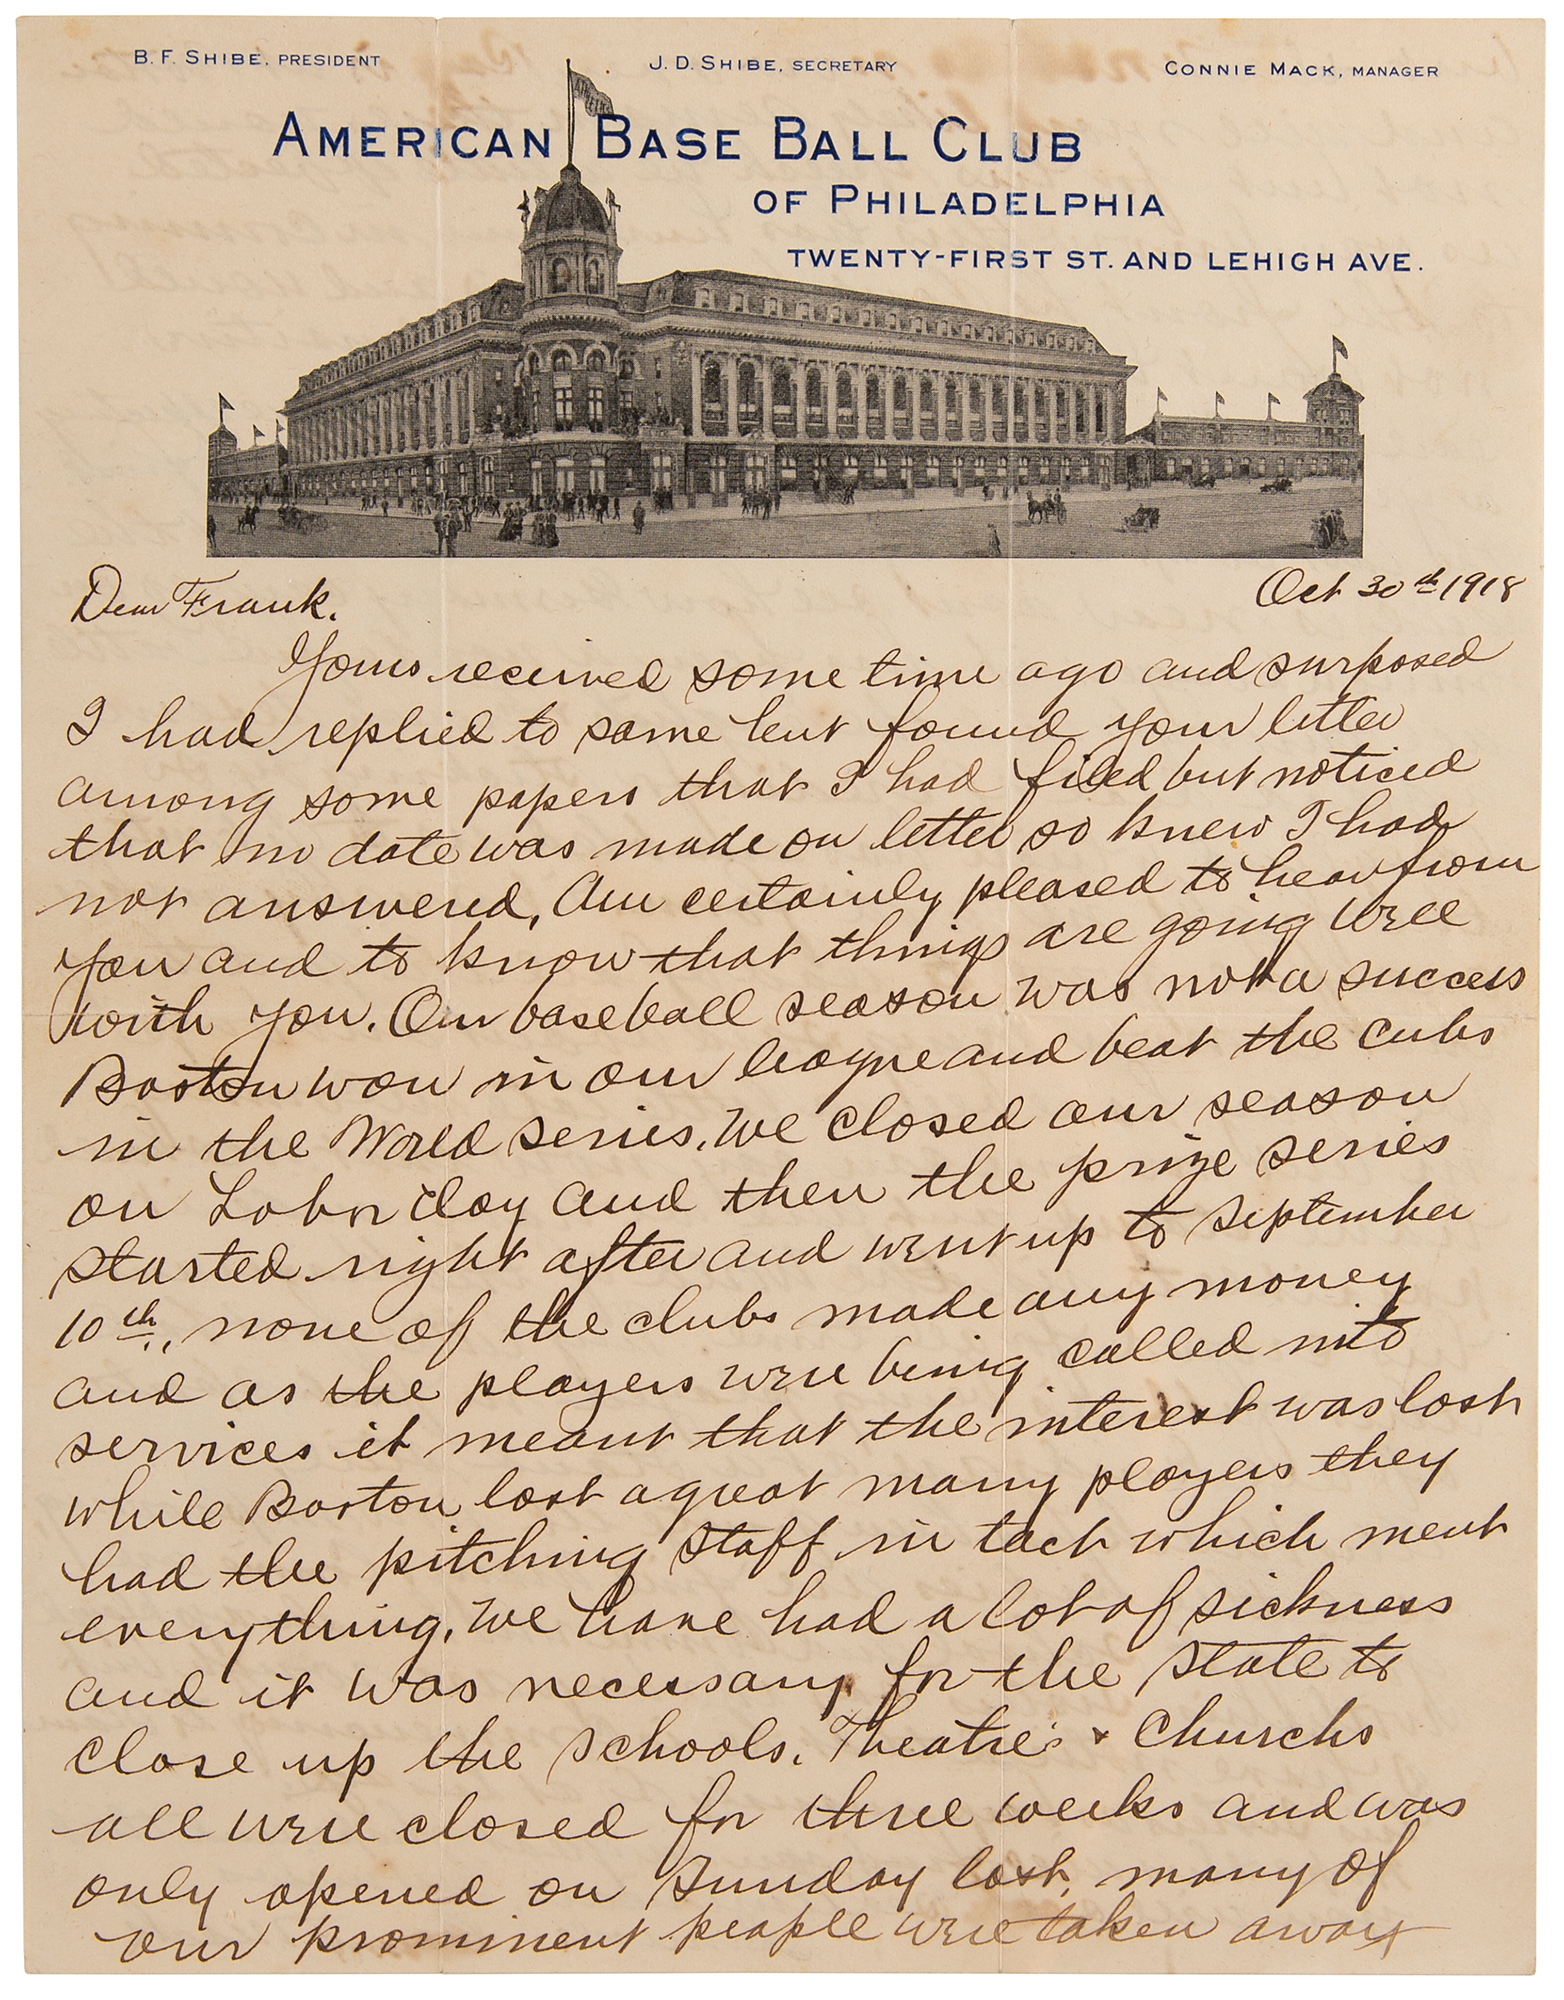 B. F. SHIBE, PRESIDENT
J. D. SHIBE, SECRETARY
CONNIE MACK, MANAGER
ATHLETICS
AMERICAN BASE BALL CLUB
OF PHILADELPHIA
TWENTY-FIRST ST. AND LEHIGH AVE.
Oct 30th 1918
Dear Frank.
Yours received some time ago and surposed
I had replied to same but found your letter
among some papers that I had filed but noticed
that no date was made on letter so knew I had
not answered. Am certainly pleased to hear from
you and to know that things are going well
with you. Our baseball season was not a success
Boston won in our league and beat the Cubs
in the World series. We closed our season
on Labor day and then the prize series
started right after and went up to September
10th., none of the clubs made any money
and as the players were being called into
services it meant that the interest was lost
while Boston lost a great many players they
had the pitching staff in tact which ment
everything. We have had a lot of sickness
and it was necessary for the state to
close up the schools. Theatres & Churchs
all were closed for three weeks and was
only opened on Sunday last. many of
our prominent people were taken away